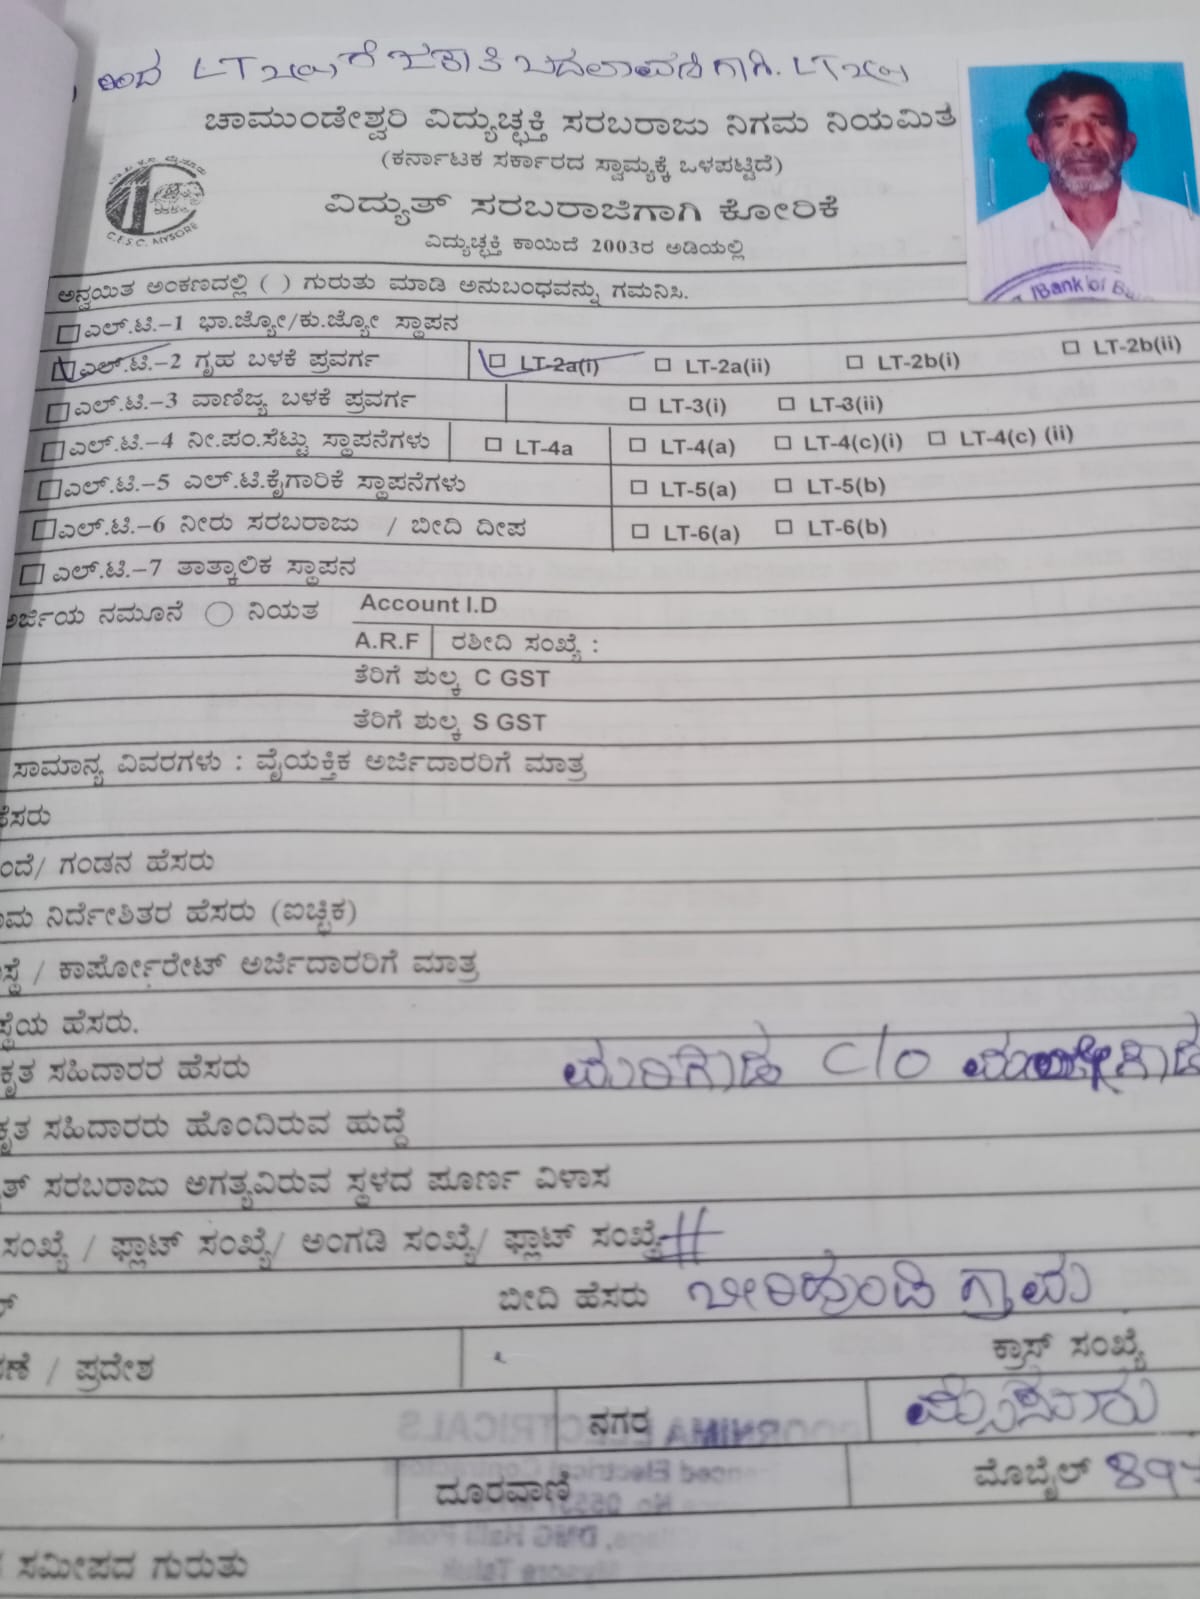 ಇಂದ LT2(a) ಗೆ ಜಕಾತಿ ಬದಲಾವಣೆಗಾಗಿ. LT2(a)
ಚಾಮುಂಡೇಶ್ವರಿ ವಿದ್ಯುಚ್ಛಕ್ತಿ ಸರಬರಾಜು ನಿಗಮ ನಿಯಮಿತ
(ಕರ್ನಾಟಕ ಸರ್ಕಾರದ ಸ್ವಾಮ್ಯಕ್ಕೆ ಒಳಪಟ್ಟಿದೆ)
C.E.S.C. MYSORE
ವಿದ್ಯುತ್ ಸರಬರಾಜಿಗಾಗಿ ಕೋರಿಕೆ
ವಿದ್ಯುಚ್ಛಕ್ತಿ ಕಾಯಿದೆ 2003ರ ಅಡಿಯಲ್ಲಿ
Bank of
ಅನ್ವಯಿತ ಅಂಕಣದಲ್ಲಿ ( ) ಗುರುತು ಮಾಡಿ ಅನುಬಂಧವನ್ನು ಗಮನಿಸಿ.
ಎಲ್.ಟಿ.-1 ಭಾ.ಜ್ಯೋ/ಕು.ಜ್ಯೋ ಸ್ಥಾಪನ
ಎಲ್.ಟಿ.-2 ಗೃಹ ಬಳಕೆ ಪ್ರವರ್ಗ LT-2a(i) LT-2a(ii) LT-2b(i) LT-2b(ii)
ಎಲ್.ಟಿ.-3 ವಾಣಿಜ್ಯ ಬಳಕೆ ಪ್ರವರ್ಗ LT-3(i) LT-3(ii)
ಎಲ್.ಟಿ.-4 ನೀ.ಪಂ.ಸೆಟ್ಟು ಸ್ಥಾಪನೆಗಳು LT-4a LT-4(a) LT-4(c)(i) LT-4(c) (ii)
ಎಲ್.ಟಿ.-5 ಎಲ್.ಟಿ.ಕೈಗಾರಿಕೆ ಸ್ಥಾಪನೆಗಳು LT-5(a) LT-5(b)
ಎಲ್.ಟಿ.-6 ನೀರು ಸರಬರಾಜು / ಬೀದಿ ದೀಪ LT-6(a) LT-6(b)
ಎಲ್.ಟಿ.-7 ತಾತ್ಕಾಲಿಕ ಸ್ಥಾಪನ
ಅರ್ಜಿಯ ನಮೂನೆ ನಿಯತ Account I.D
A.R.F ರಶೀದಿ ಸಂಖ್ಯೆ :
ತೆರಿಗೆ ಶುಲ್ಕ C GST
ತೆರಿಗೆ ಶುಲ್ಕ S GST
ಸಾಮಾನ್ಯ ವಿವರಗಳು : ವೈಯಕ್ತಿಕ ಅರ್ಜಿದಾರರಿಗೆ ಮಾತ್ರ
ಹೆಸರು
ಂದೆ/ ಗಂಡನ ಹೆಸರು
ಾಮ ನಿರ್ದೇಶಿತರ ಹೆಸರು (ಐಚ್ಛಿಕ)
ಸ್ಥೆ / ಕಾರ್ಪೋರೇಟ್ ಅರ್ಜಿದಾರರಿಗೆ ಮಾತ್ರ
ಸ್ಥೆಯ ಹೆಸರು.
ಕೃತ ಸಹಿದಾರರ ಹೆಸರು ಮರಿಗೌಡ C/O
ಕೃತ ಸಹಿದಾರರು ಹೊಂದಿರುವ ಹುದ್ದೆ
ತ್ ಸರಬರಾಜು ಅಗತ್ಯವಿರುವ ಸ್ಥಳದ ಪೂರ್ಣ ವಿಳಾಸ
ಸಂಖ್ಯೆ / ಫ್ಲಾಟ್ ಸಂಖ್ಯೆ/ ಅಂಗಡಿ ಸಂಖ್ಯೆ/ ಫ್ಲಾಟ್ ಸಂಖ್ಯೆ
ಬೀದಿ ಹೆಸರು ಬೀರಿಹುಂಡಿ ಗ್ರಾಮ
ಣೆ / ಪ್ರದೇಶ ಕ್ರಾಸ್ ಸಂಖ್ಯೆ
ನಗರ ಮೈಸೂರು
ದೂರವಾಣಿ ಮೊಬೈಲ್ 897
ಸಮೀಪದ ಗುರುತು